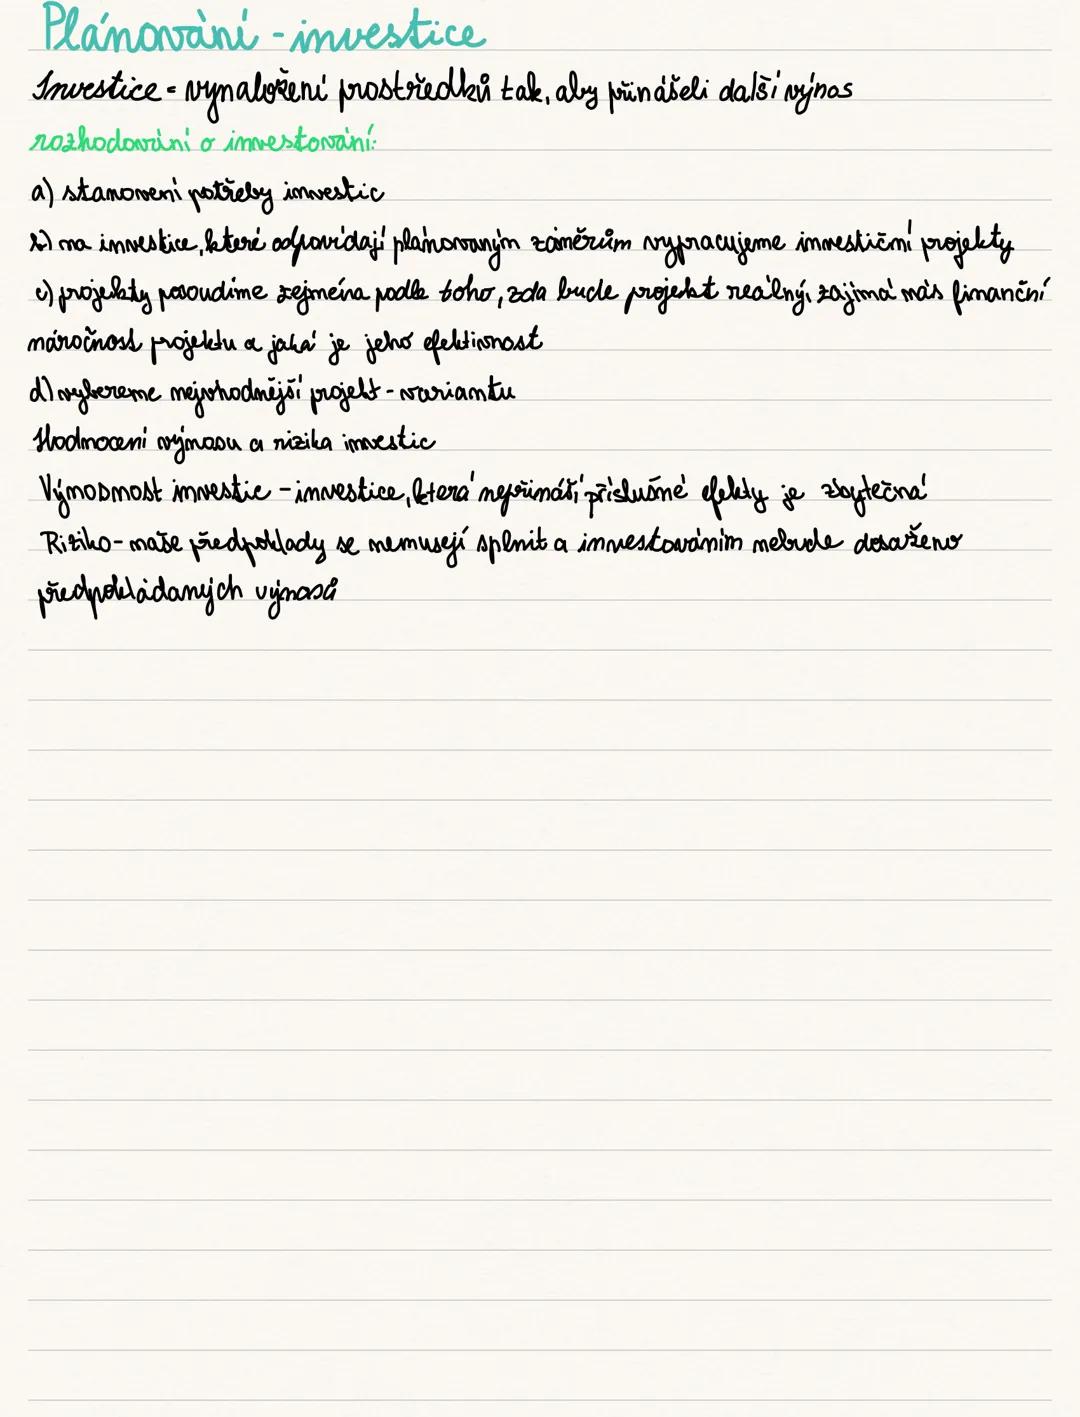 Plánování - investice
Investice = vynaložení prostředků tak, aby přinášeli další výnos
rozhodování o investování:
a) stanovení potřeby investic
b) na investice, které odpovídají plánovaným záměrům vypracujeme investiční projekty
c) projekty posoudíme zejména podle toho, zda bude projekt reálný, zajímá nás finanční
náročnost projektu a jaká je jeho efektivnost
d) vybereme nejvhodnější projekt - variantu
Hodnocení výnosu a rizika investic
Výnosnost investic - investice, která nepřináší příslušné efekty je zbytečná
Riziko - naše předpoklady se nemusejí splnit a investováním nebude dosaženo
předpokládaných výnosů